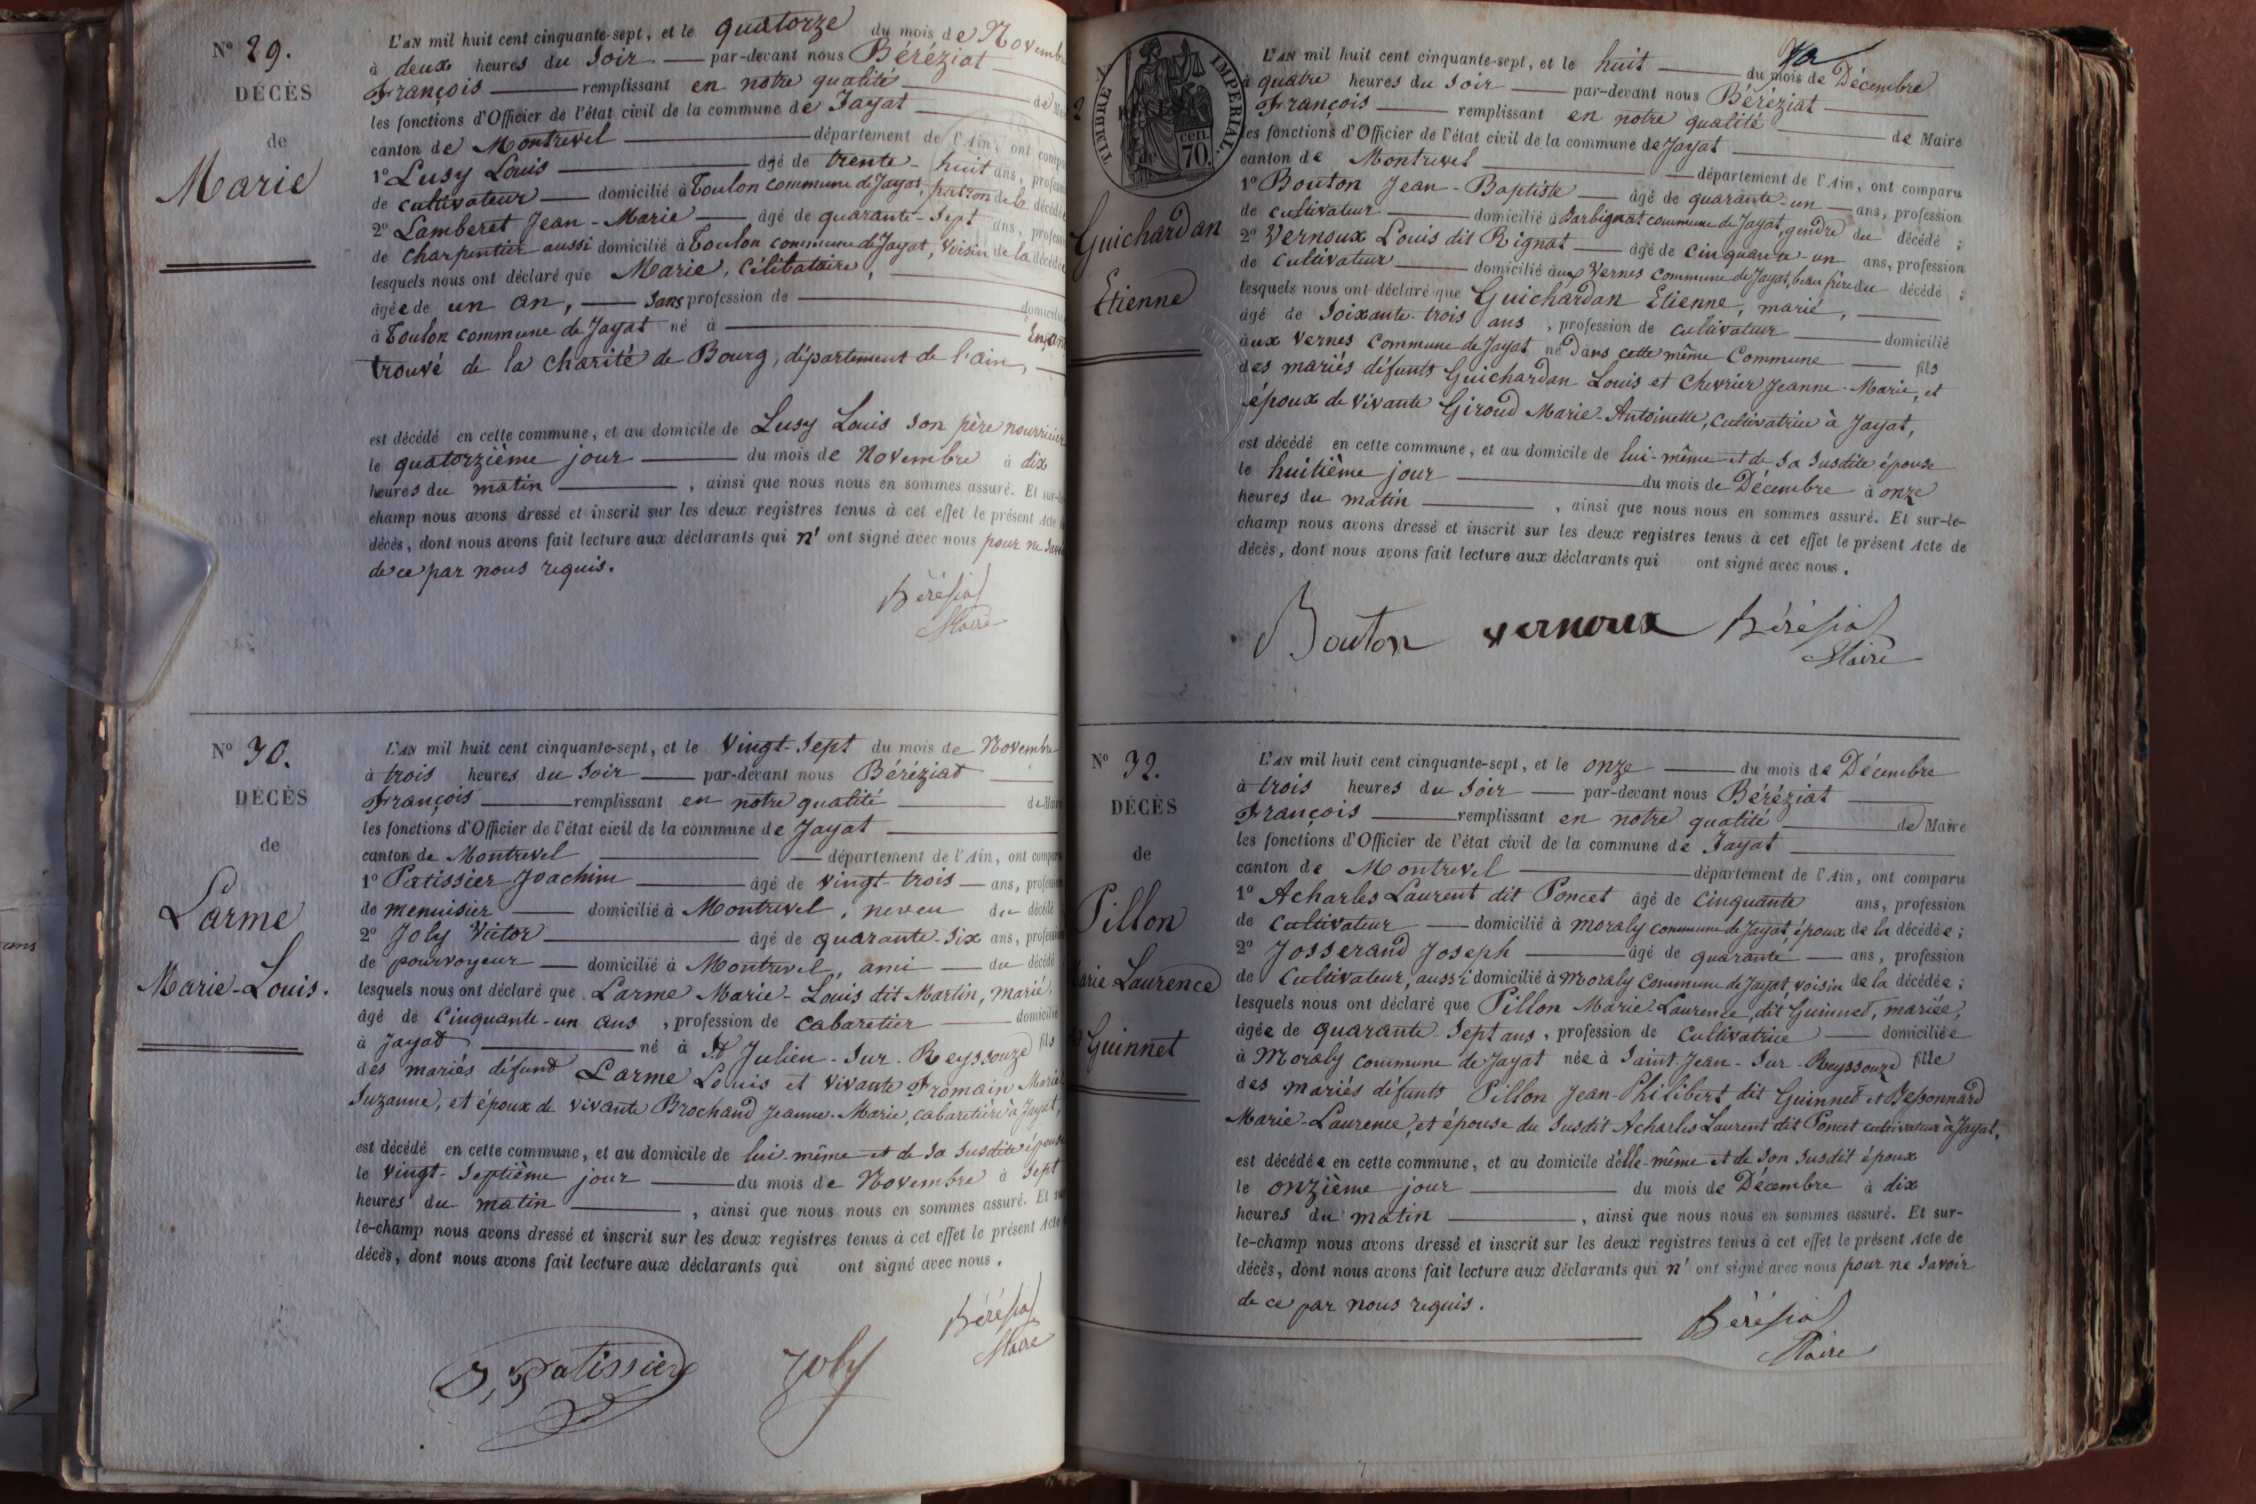 Nº 29.
DÉCÈS
de
Marie
L'AN mil huit cent cinquante-sept, et le quatorze du mois de Novembre
à deux heures du Soir par-devant nous Béréziat
François remplissant en notre qualité de Maire
les fonctions d'Officier de l'état civil de la commune de Jayat
canton de Montrevel département de l'Ain, ont comparu
1º Lusy Louis âgé de trente-huit ans, profession
de cultivateur domicilié à Toulon commune de Jayat, patron de la décédée
2º Lamberet Jean-Marie âgé de quarante-Sept ans, profession
de charpentier aussi domicilié à Toulon commune de Jayat, Voisin de la décédée
lesquels nous ont déclaré que Marie, Célibataire,
âgée de un an, Sans profession de domiciliée
à Toulon commune de Jayat né à Enfant
trouvé de la charité de Bourg, département de l'ain,
est décédé en cette commune, et au domicile de Lusy Louis Son père nourricier
le quatorzième jour du mois de Novembre à dix
heures du matin, ainsi que nous nous en sommes assuré. Et sur-le-
champ nous avons dressé et inscrit sur les deux registres tenus à cet effet le présent Acte de
décès, dont nous avons fait lecture aux déclarants qui n'ont signé avec nous pour ne Savoir
de ce par nous requis.
Béréziat
Maire
Nº 30.
DÉCÈS
de
Larme
Marie-Louis.
L'AN mil huit cent cinquante-sept, et le Vingt-Sept du mois de Novembre
à trois heures du Soir par-devant nous Béréziat
François remplissant en notre qualité de Maire
les fonctions d'Officier de l'état civil de la commune de Jayat
canton de Montrevel département de l'Ain, ont comparu
1º Patissier Joachim âgé de vingt-trois ans, profession
de menuisier domicilié à Montrevel, neveu du décédé
2º Joly Victor âgé de quarante-Six ans, profession
de pourvoyeur domicilié à Montrevel, ami du décédé
lesquels nous ont déclaré que Larme Marie-Louis dit Martin, marié,
âgé de Cinquante-un ans, profession de cabaretier domicilié
à Jayat né à St Julien-Sur-Reyssouze fils
des mariés défunt Larme Louis et vivante Fromain Marie
Suzanne, et époux de vivante Brochand Jeanne-Marie, cabaretière à Jayat,
est décédé en cette commune, et au domicile de lui-même et de Sa Susdite épouse
le Vingt-Septième jour du mois de Novembre à Sept
heures du matin, ainsi que nous nous en sommes assuré. Et sur-
le-champ nous avons dressé et inscrit sur les deux registres tenus à cet effet le présent Acte de
décès, dont nous avons fait lecture aux déclarants qui ont signé avec nous.
J. Patissier Joly Béréziat
Maire
TIMBRE IMPÉRIAL
cen.
70.
Guichardan
Etienne
L'AN mil huit cent cinquante-sept, et le huit du mois de Décembre
à quatre heures du Soir par-devant nous Béréziat
François remplissant en notre qualité de Maire
les fonctions d'Officier de l'état civil de la commune de Jayat
canton de Montrevel département de l'Ain, ont comparu
1º Bouton Jean-Baptiste âgé de quarante-un ans, profession
de cultivateur domicilié à Barbignat commune de Jayat, gendre du décédé;
2º Vernoux Louis dit Rignat âgé de cinquante un ans, profession
de cultivateur domicilié aux Vernes commune de Jayat, beau frère du décédé;
lesquels nous ont déclaré que Guichardan Etienne, marié,
âgé de Soixante-trois ans, profession de cultivateur domicilié
aux Vernes commune de Jayat né dans cette même Commune fils
des mariés défunts Guichardan Louis et Chevrier Jeanne-Marie, et
époux de vivante Giroud Marie-Antoinette, cultivatrice à Jayat,
est décédé en cette commune, et au domicile de lui-même et de Sa Susdite épouse
le huitième jour du mois de Décembre à onze
heures du matin, ainsi que nous nous en sommes assuré. Et sur-le-
champ nous avons dressé et inscrit sur les deux registres tenus à cet effet le présent Acte de
décès, dont nous avons fait lecture aux déclarants qui ont signé avec nous.
Bouton vernoux Béréziat
Maire
Nº 32.
DÉCÈS
de
Pillon
Marie Laurence
dit Guinnet
L'AN mil huit cent cinquante-sept, et le onze du mois de Décembre
à trois heures du Soir par-devant nous Béréziat
François remplissant en notre qualité de Maire
les fonctions d'Officier de l'état civil de la commune de Jayat
canton de Montrevel département de l'Ain, ont comparu
1º Acharles Laurent dit Poncet âgé de Cinquante ans, profession
de Cultivateur domicilié à moraly commune de Jayat, époux de la décédée;
2º Josserand Joseph âgé de quarante ans, profession
de Cultivateur, aussi domicilié à Moraly Commune de Jayat voisin de la décédée;
lesquels nous ont déclaré que Pillon Marie-Laurence, dit Guinnet, mariée,
âgée de quarante-Sept ans, profession de Cultivatrice domiciliée
à Moraly commune de Jayat née à Saint-Jean-Sur-Reyssouze fille
des mariés défunts Pillon Jean-Philibert dit Guinnet et Bessonnard
Marie-Laurence, et épouse du Susdit Acharles Laurent dit Poncet cultivateur à Jayat,
est décédée en cette commune, et au domicile d'elle-même et de Son Susdit époux
le onzième jour du mois de Décembre à dix
heures du matin, ainsi que nous nous en sommes assuré. Et sur-
le-champ nous avons dressé et inscrit sur les deux registres tenus à cet effet le présent Acte de
décès, dont nous avons fait lecture aux déclarants qui n'ont signé avec nous pour ne Savoir
de ce par nous requis.
Béréziat
Maire